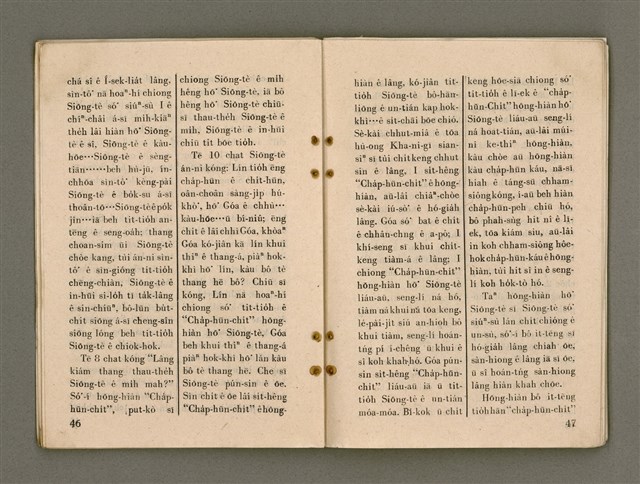 chá sī ê Í-sek-lia̍t lâng,
sìn-tô͘ nā hoaⁿ-hí chiong
Siōng-tè só͘ siúⁿ-sù I ê
chîⁿ-châi á-sī mi̍h-kiāⁿ
the̍h lâi hiàn hō͘ Siōng-
tè ê sî, Siōng-tè ê kàu-
hōe⋯Siōng-tè ê sèng-
tiān⋯⋯beh hú-jū, ín-
chhōa sìn-tô͘ kèng-pài
Siōng-tè ê bo̍k-su á-sī
thoân-tō⋯Siōng-tè ê po̍k
jîn⋯iā beh tit-tio̍h an-
tēng ê seng-oa̍h; thang
choan-sim ūi Siōng-tè
chòe kang, tùi án-ni sìn-
tô͘ ê sìn-gióng tit-tio̍h
chêng-chiàn, Siōng-tè ê
in-hūi sī-lo̍h tī ta̍k-lâng
ê sin-chiūⁿ, bô-lūn bu̍t-
chit siōng á-sī cheng-sîn
siōng lóng beh tit-tio̍h
Siōng-tè ê chiok-hok.
Tē 8 chat kóng "Lâng
kiám thang thau-the̍h
Siōng-tè ê mi̍h mah?"
Só͘-í hōng-hiàn "Cha̍p-
hūn-chit", put-kò sī
46
chiong Siōng-tè ê mi̍h
hêng hō͘ Siōng-tè, iā bô
hêng hō͘ Siōng-tè chiū-
sī thau-the̍h Siōng-tè ê
mi̍h, Siōng-tè ê in-hūi
chiū tit bōe tio̍h.
Tē 10 chat Siōng-tè
án-ni kóng: Lín tio̍h ēng
cha̍p-hūn ê chi̍t-hūn,
oân-choân sàng-ji̍p hú-
khò͘, hō͘ Góa ê chhù⋯
kàu-hōe⋯ū bí-niû; ēng
chit ê lâi chhì Góa, khòaⁿ
Góa kó-jiân kā lín khui
thiⁿ ê thang-á, piàⁿ hok-
khì hō͘ lín, kàu bô tè
thang hē bô? Chiū sī
kóng, Lín nā hoaⁿ-hí
chiong só͘ tit-tio̍h ê
"Cha̍p-hūn-chit" hōng-
hiàn hō͘ Siōng-tè, Góa
beh khui thiⁿ ê thang-á
piàⁿ hok-khì hō͘ lín kàu
bô tè thang hē. Che sī
Siōng-tè pún-sin ê ōe.
Sìn chit ê ōe lâi si̍t-hêng
"Cha̍p-hūn-chit" ê hōng-
hiàn ê lâng, kó-jiân tit-
tio̍h Siōng-tè bô-hān-
liōng ê un-tián kap hok-
khì⋯ê si̍t-chāi bōe chió.
Sè-kài chhut-miâ ê tōa
hù-ong Kha-ni-gí sian-
siⁿ sī tùi chi̍t keng chhut
sin ê lâng, I si̍t-hêng
"Cha̍p-hūn-chit" ê hōng-
hiàn, aū-lâi chiâⁿ-chòe
sè-kài iú-sò͘ ê hó-gia̍h
lâng. Góa só͘ bat ê chi̍t
ê chhân-chng ê a-pô; I
khí-seng sī khui chi̍t
keng tiàm-á ê lâng; I
chiong "Cha̍p-hūn-chit"
hōng-hiàn hō͘ Siōng-tè
liáu-aū, seng-lí ná hó,
tiàm ná khui ná tōa keng,
lé-pài-ji̍t siú an-hioh bô
khui tiàm, seng-lí hoán-
tńg pí í-chêng ū khui ê
sî koh khah hó. Góa pún-
sin si̍t-hêng "Cha̍p-hūn-
chit" liáu-aū iā ū tit-
tio̍h Siōng-tè ê un-tián
móa-móa. Bí-kok ū chi̍t
keng hōe-siā chiong só͘
tit-tio̍h ê lī-ek ê "cha̍p-
hūn-Chit" hōng-hiàn hō͘
Siōng-tè liáu-aū seng-lí
ná hoat-tián, aū-lâi múi-
nî ke-thiⁿ hōng-hiàn,
kàu chòe aū hōng-hiàn
kàu cha̍p-hūn káu, ná-sī
hiah ê tāng-sū chham-
siông kóng, í-aū beh hiàn
cha̍p-hūn-peh chiū hó,
bô phah-sǹg hit nî ê lī-
ek, tōa kiám siu, aū-lâi
in koh chham-siông hôe-
hok cha̍p-hūn-káu ê hōng-
hiàn, tùi hit sî in ê seng-
lí koh ho̍k-tò hó.
Taⁿ hōng-hiàn hō͘
Siōng-tè sī Siōng-tè só͘
siúⁿ-sù lán chi̍t chiòng ê
un-sù, só͘-í bô it-tēng sī
hó-gia̍h lâng chiah ōe.
sàn-hiong ê lâng iā sī ōe,
ū sî hoán-tńg sàn-hiong
lâng hiàn khah chōe.
Hōng-hiàn bô it-tēng
tio̍h hān "cha̍p-hūn-chit"
47